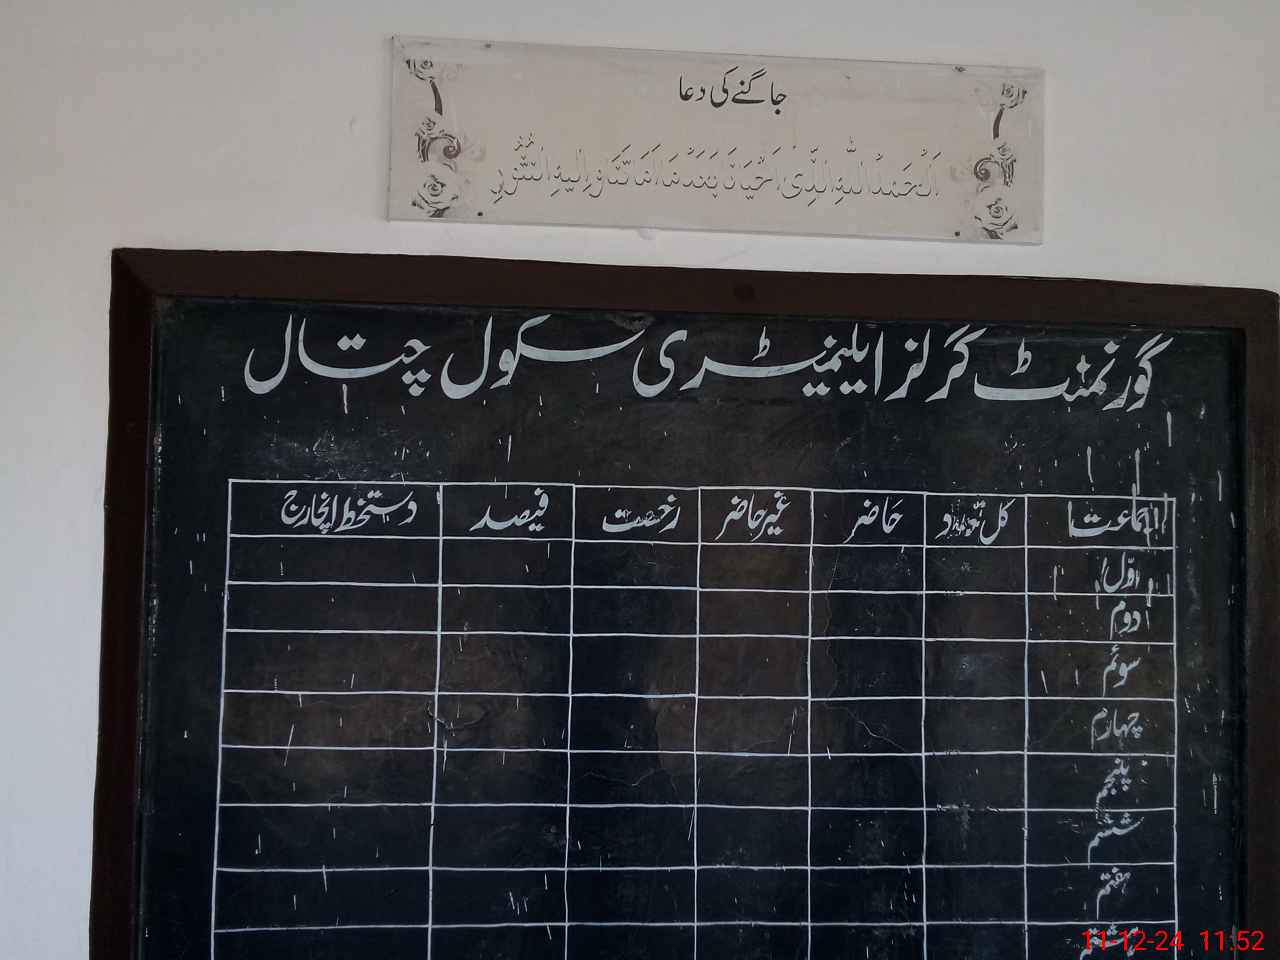 جاگنے کی دعا
اَلْحَمْدُ لِلّٰہِ الَّذِیْ اَحْیَانَا بَعْدَ مَا اَمَاتَنَا وَاِلَیْہِ النُّشُوْرُ
گورنمنٹ گرلز ایلیمنیٹری سکول چتال
جماعت کل تعداد حاضر غیر حاضر رخصت فیصد دستخط انچارج
اوّل
دوم
سوئم
چہارم
پنجم
ششم
ہفتم
ہشتم
11-12-24 11:52